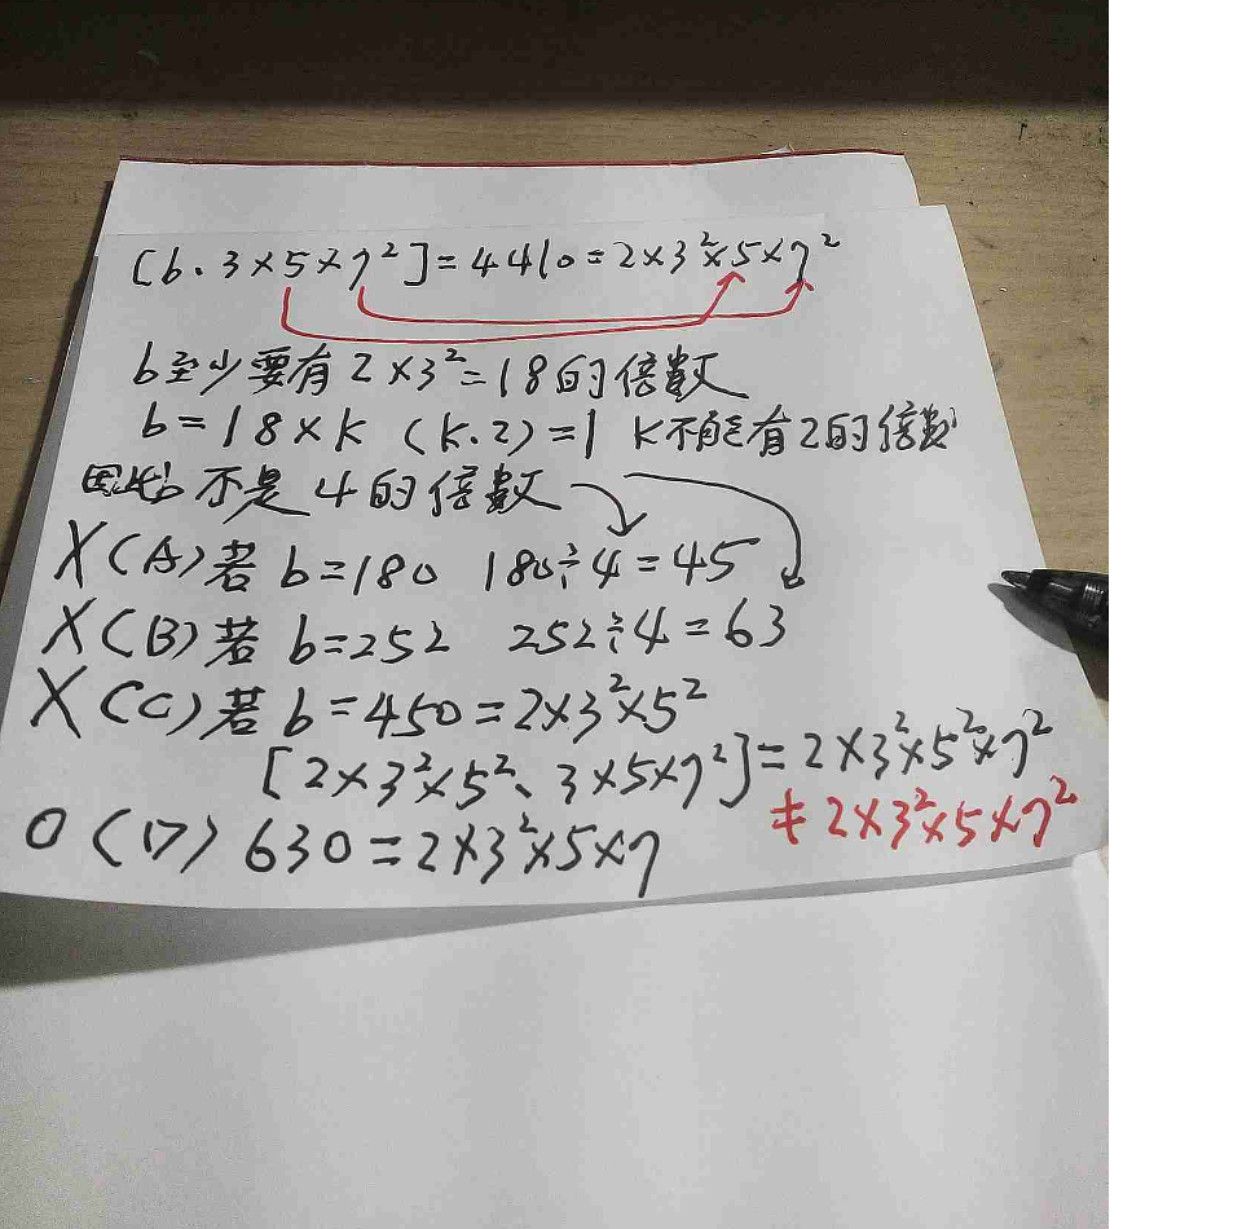 [b、3×5×7²]=4410=2×3²×5×7²
b至少要有2×3²=18的倍數
b=18×k (k.2)=1 k不能有2的倍數
因此 不是4的倍數
X(A)若 b=180 180÷4=45
X(B)若 b=252 252÷4=63
X(C)若 b=450=2×3²×5²
[2×3²×5²、3×5×7²]=2×3²×5²×7²
≠2×3²×5×7²
O(D) 630=2×3²×5×7